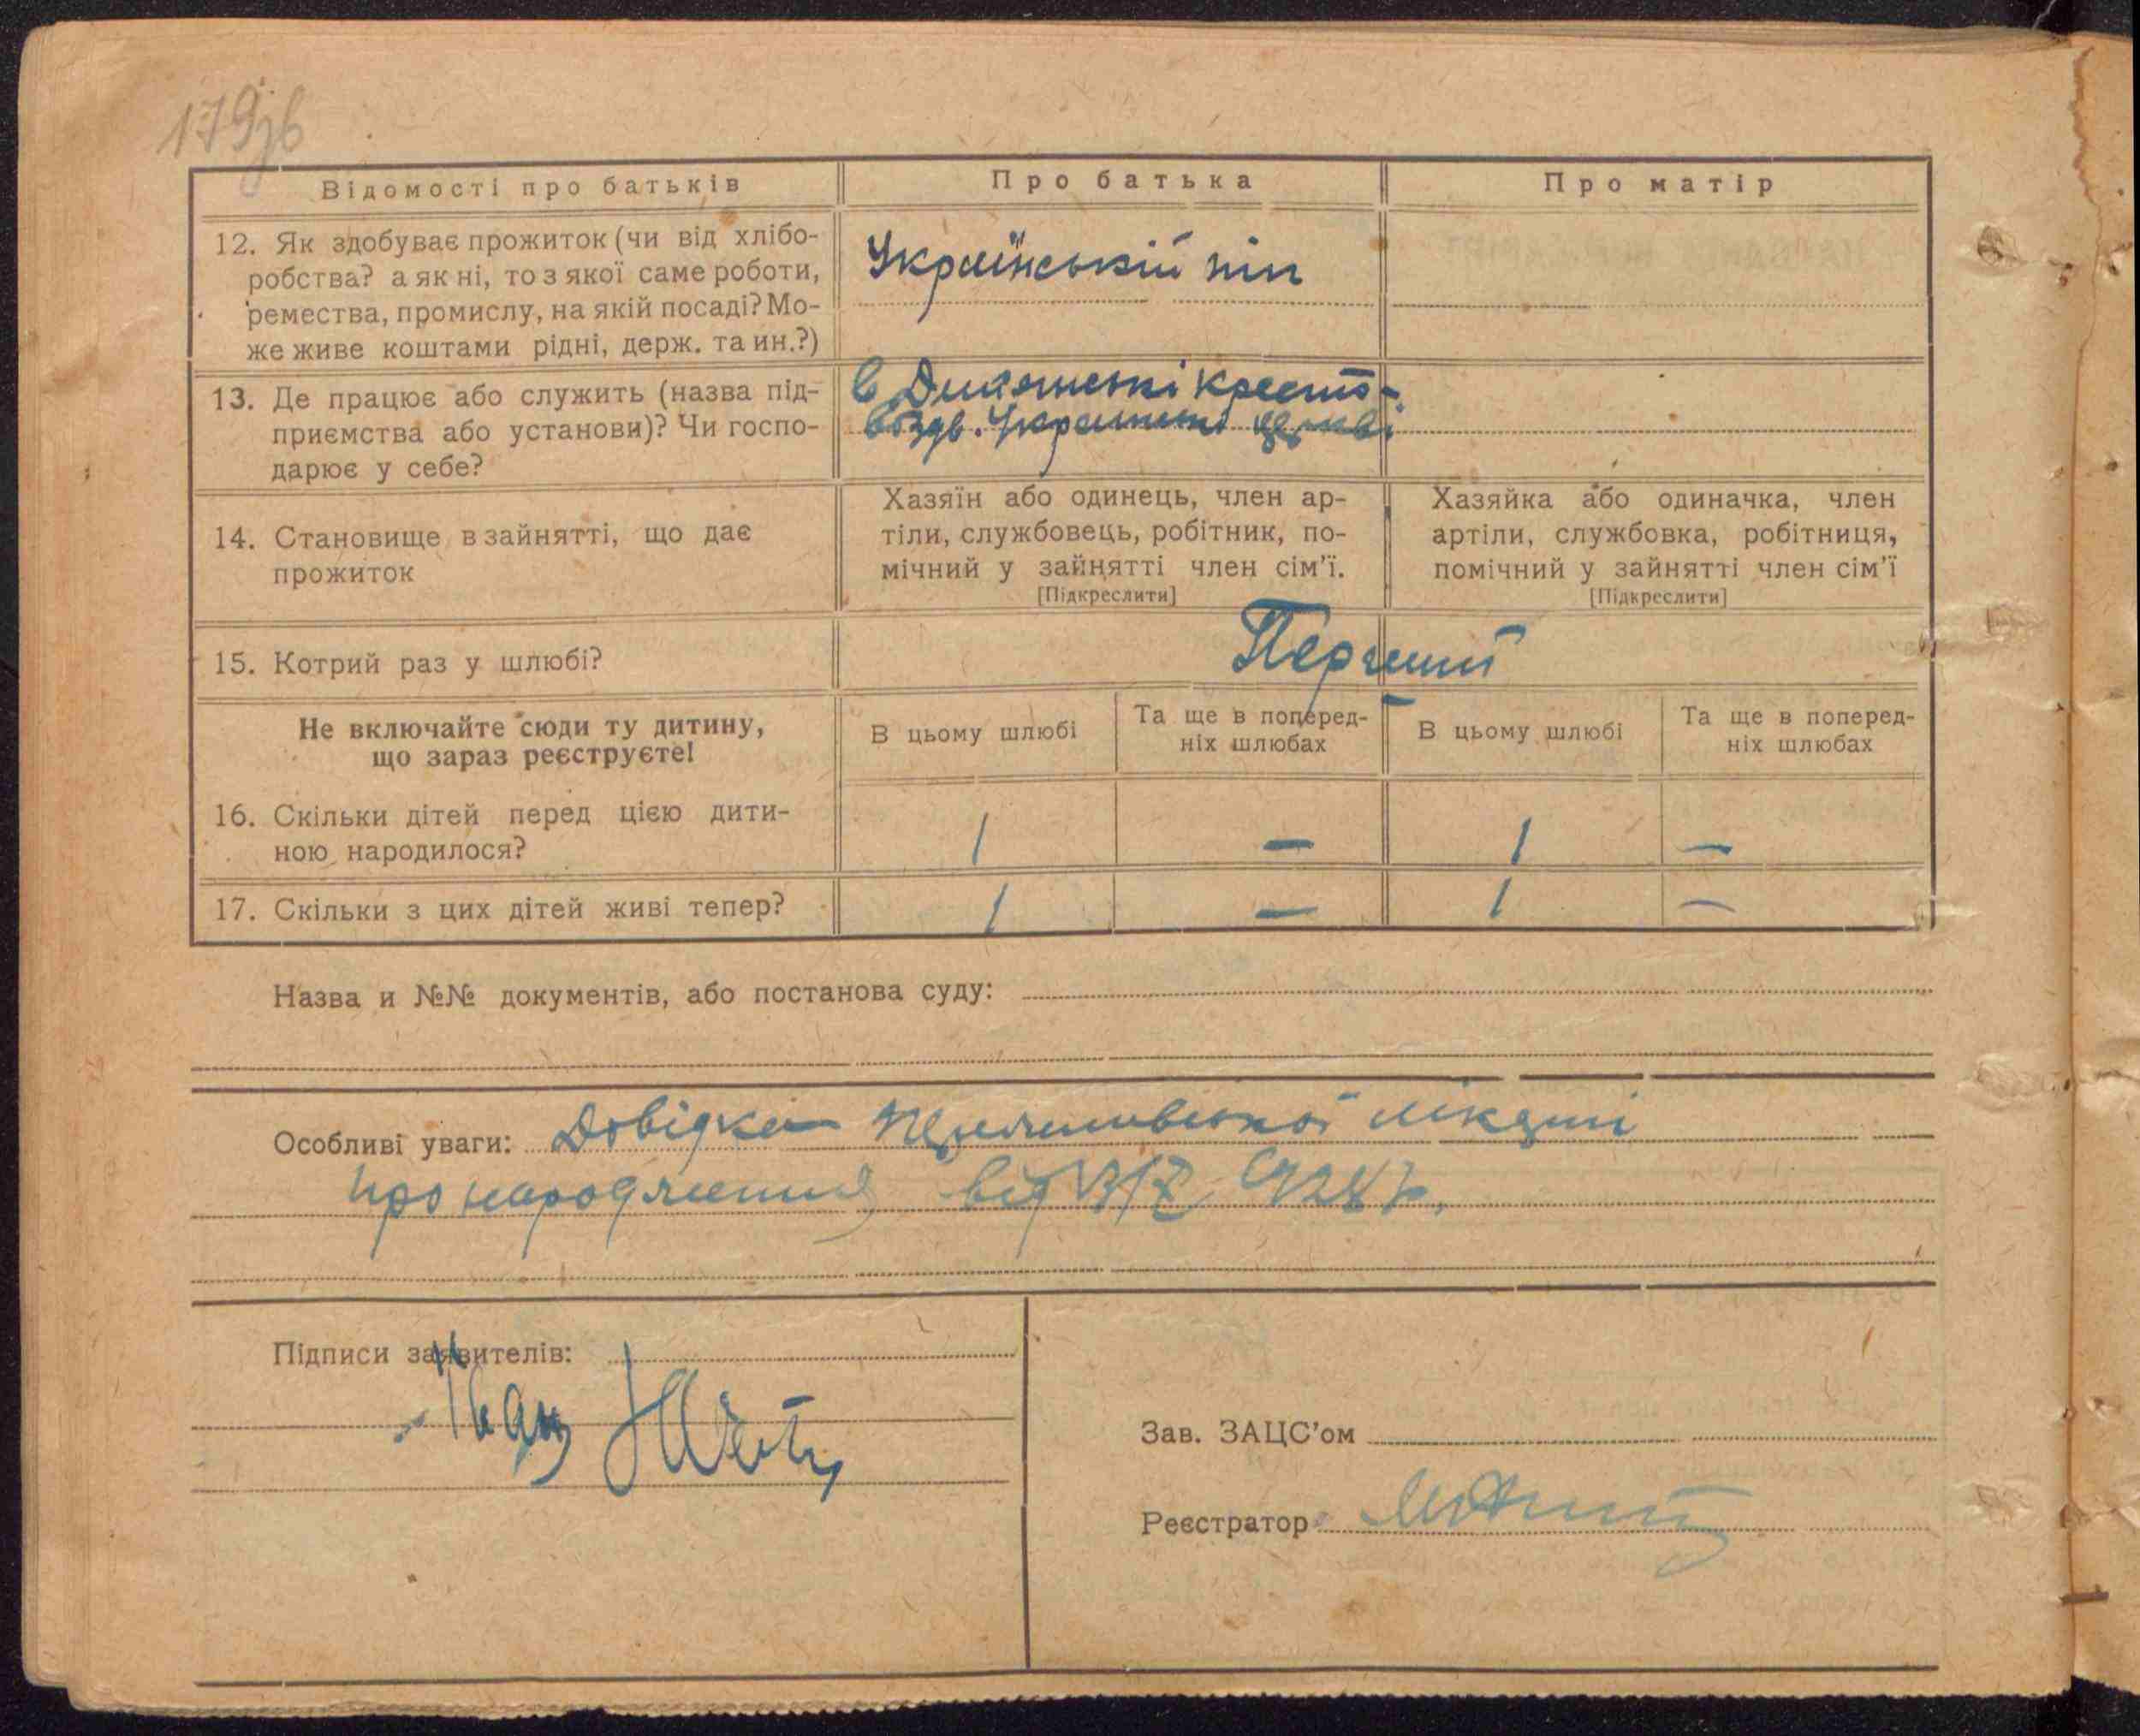 179зв
Відомості про батьків
Про батька
Про матір
12. Як здобуває прожиток (чи від хлібо-
робства? а як ні, то з якої саме роботи,
ремества, промислу, на якій посаді? Мо-
же живе коштами рідні, держ. та ин.?)
Український піп
13. Де працює або служить (назва під-
приємства або установи)? Чи госпо-
дарює у себе?
в Диканські Кресто-
воздв. Українські церкві
14. Становище в зайнятті, що дає
прожиток
Хазяїн або одинець, член ар-
тіли, службовець, робітник, по-
мічний у зайнятті член сім'ї.
[Підкреслити]
Хазяйка або одиначка, член
артіли, службовка, робітниця,
помічний у зайнятті член сім'ї
[Підкреслити]
15. Котрий раз у шлюбі?
Перший
Не включайте сюди ту дитину,
що зараз реєструєте!
В цьому шлюбі
Та ще в поперед-
ніх шлюбах
В цьому шлюбі
Та ще в поперед-
ніх шлюбах
16. Скільки дітей перед цією дити-
ною народилося?
1 — 1 —
17. Скільки з цих дітей живі тепер?
1 — 1 —
Назва и №№ документів, або постанова суду:
Особливі уваги: Довідка лікарні
про народження від 928 р.
Підписи заявителів:
Іван
Зав. ЗАЦС'ом
Реєстратор